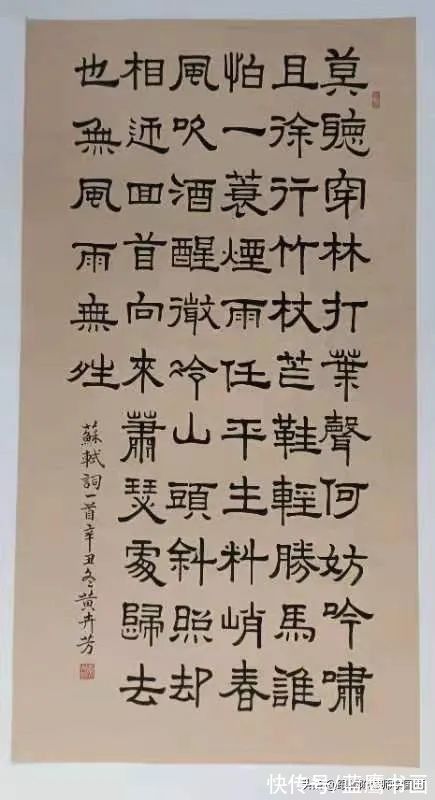 莫聽穿林打葉聲何妨吟嘯
且徐行竹杖芒鞋輕勝馬誰
怕一蓑煙雨任平生料峭春
風吹酒醒微冷山頭斜照却
相迎回首向來蕭瑟處歸去
也無風雨無夝
蘇軾詞一首辛丑冬黄卉芳
快传号/蓝鹰书画